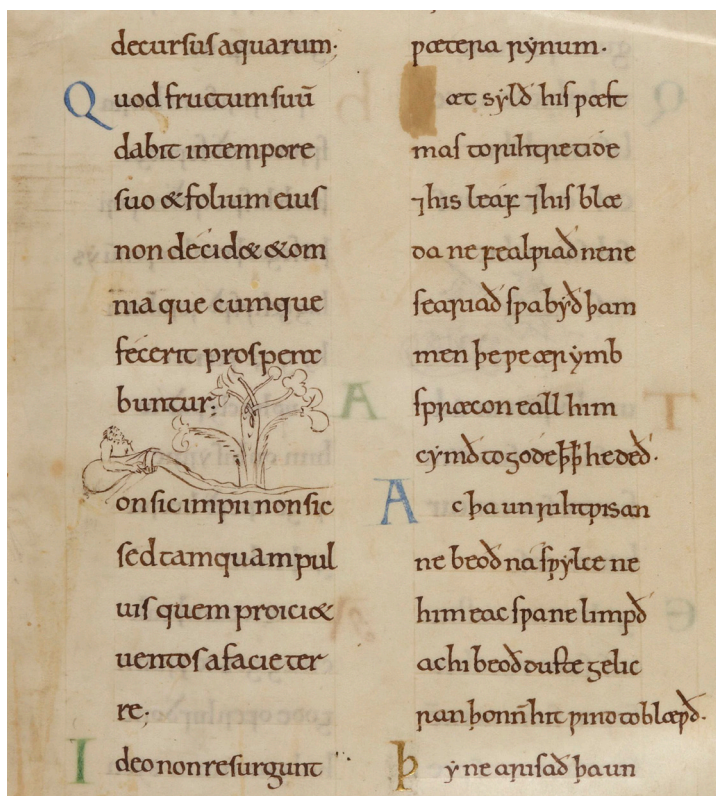 decursus aquarum·
Quod fructum suū
dabit in tempore
suo & folium eius
non decid& & om
nia que cumque
fecerit prospera
buntur;
on sic impii non sic
sed tamquam pul
uis quem proici&
uentos a facie ter
re;
Ideo non resurgunt
ƿætera rynum·
æt sylð his ƿæst
mas to rihtre tide
⁊ his leaf ⁊ his blæ
da ne fealƿiað ne ne
seariað sƿa byð þam
men þe ƿe ær ymb
spræcon eall him
cymð to gode ꝥ ꝥ he deð·
Ac þa unrihtƿisan
ne beoð na sƿylce ne
him eac sƿa ne limpð
ac hi beoð duste gelic
ran þonn̄ hit ƿind toblæƿð·
Þy ne arisað þa un